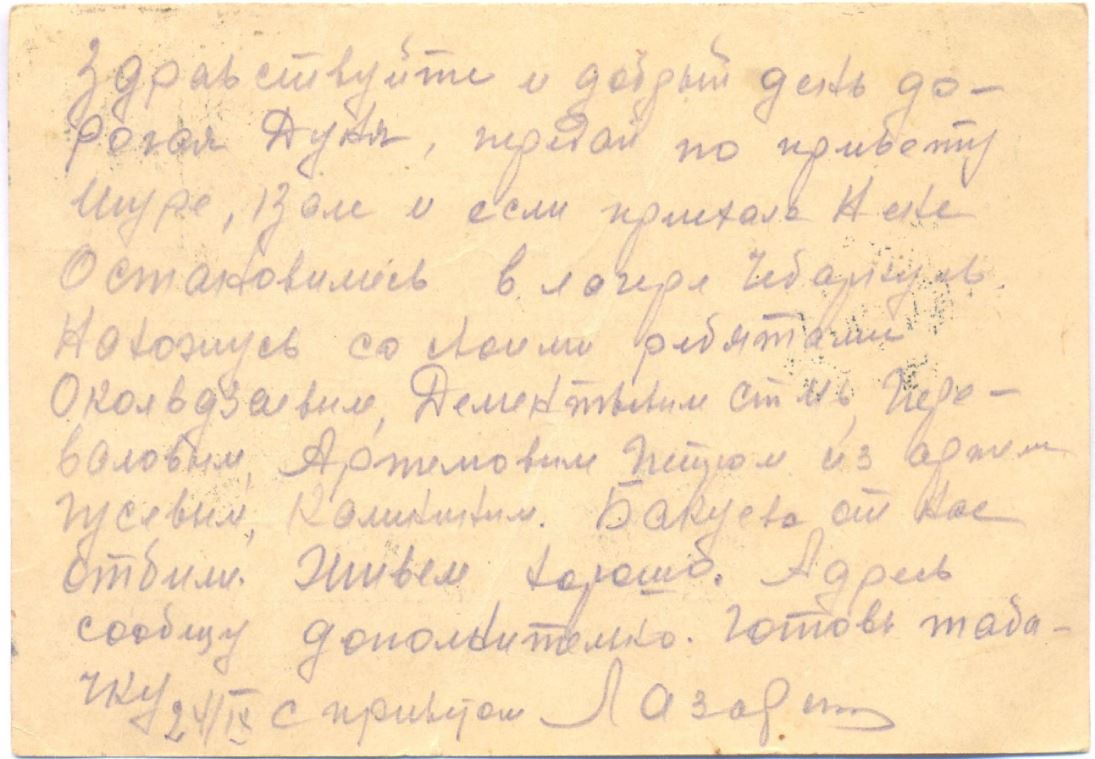 Здравствуйте и добрый день до-
рогая Дуня, передай по привету
Шуре, Вале и если приехала Нене
Остановились в лагере Чебаркуль.
Нахожусь со своими ребятами
Дементьевым Пере-
валовым, Артемовым Петром из
Гусевым, Калининым. Бакуева от нас
отбили. Живем хорошо. Адрес
сообщу дополнительно. Готовь таба-
чку 24/IX с приветом